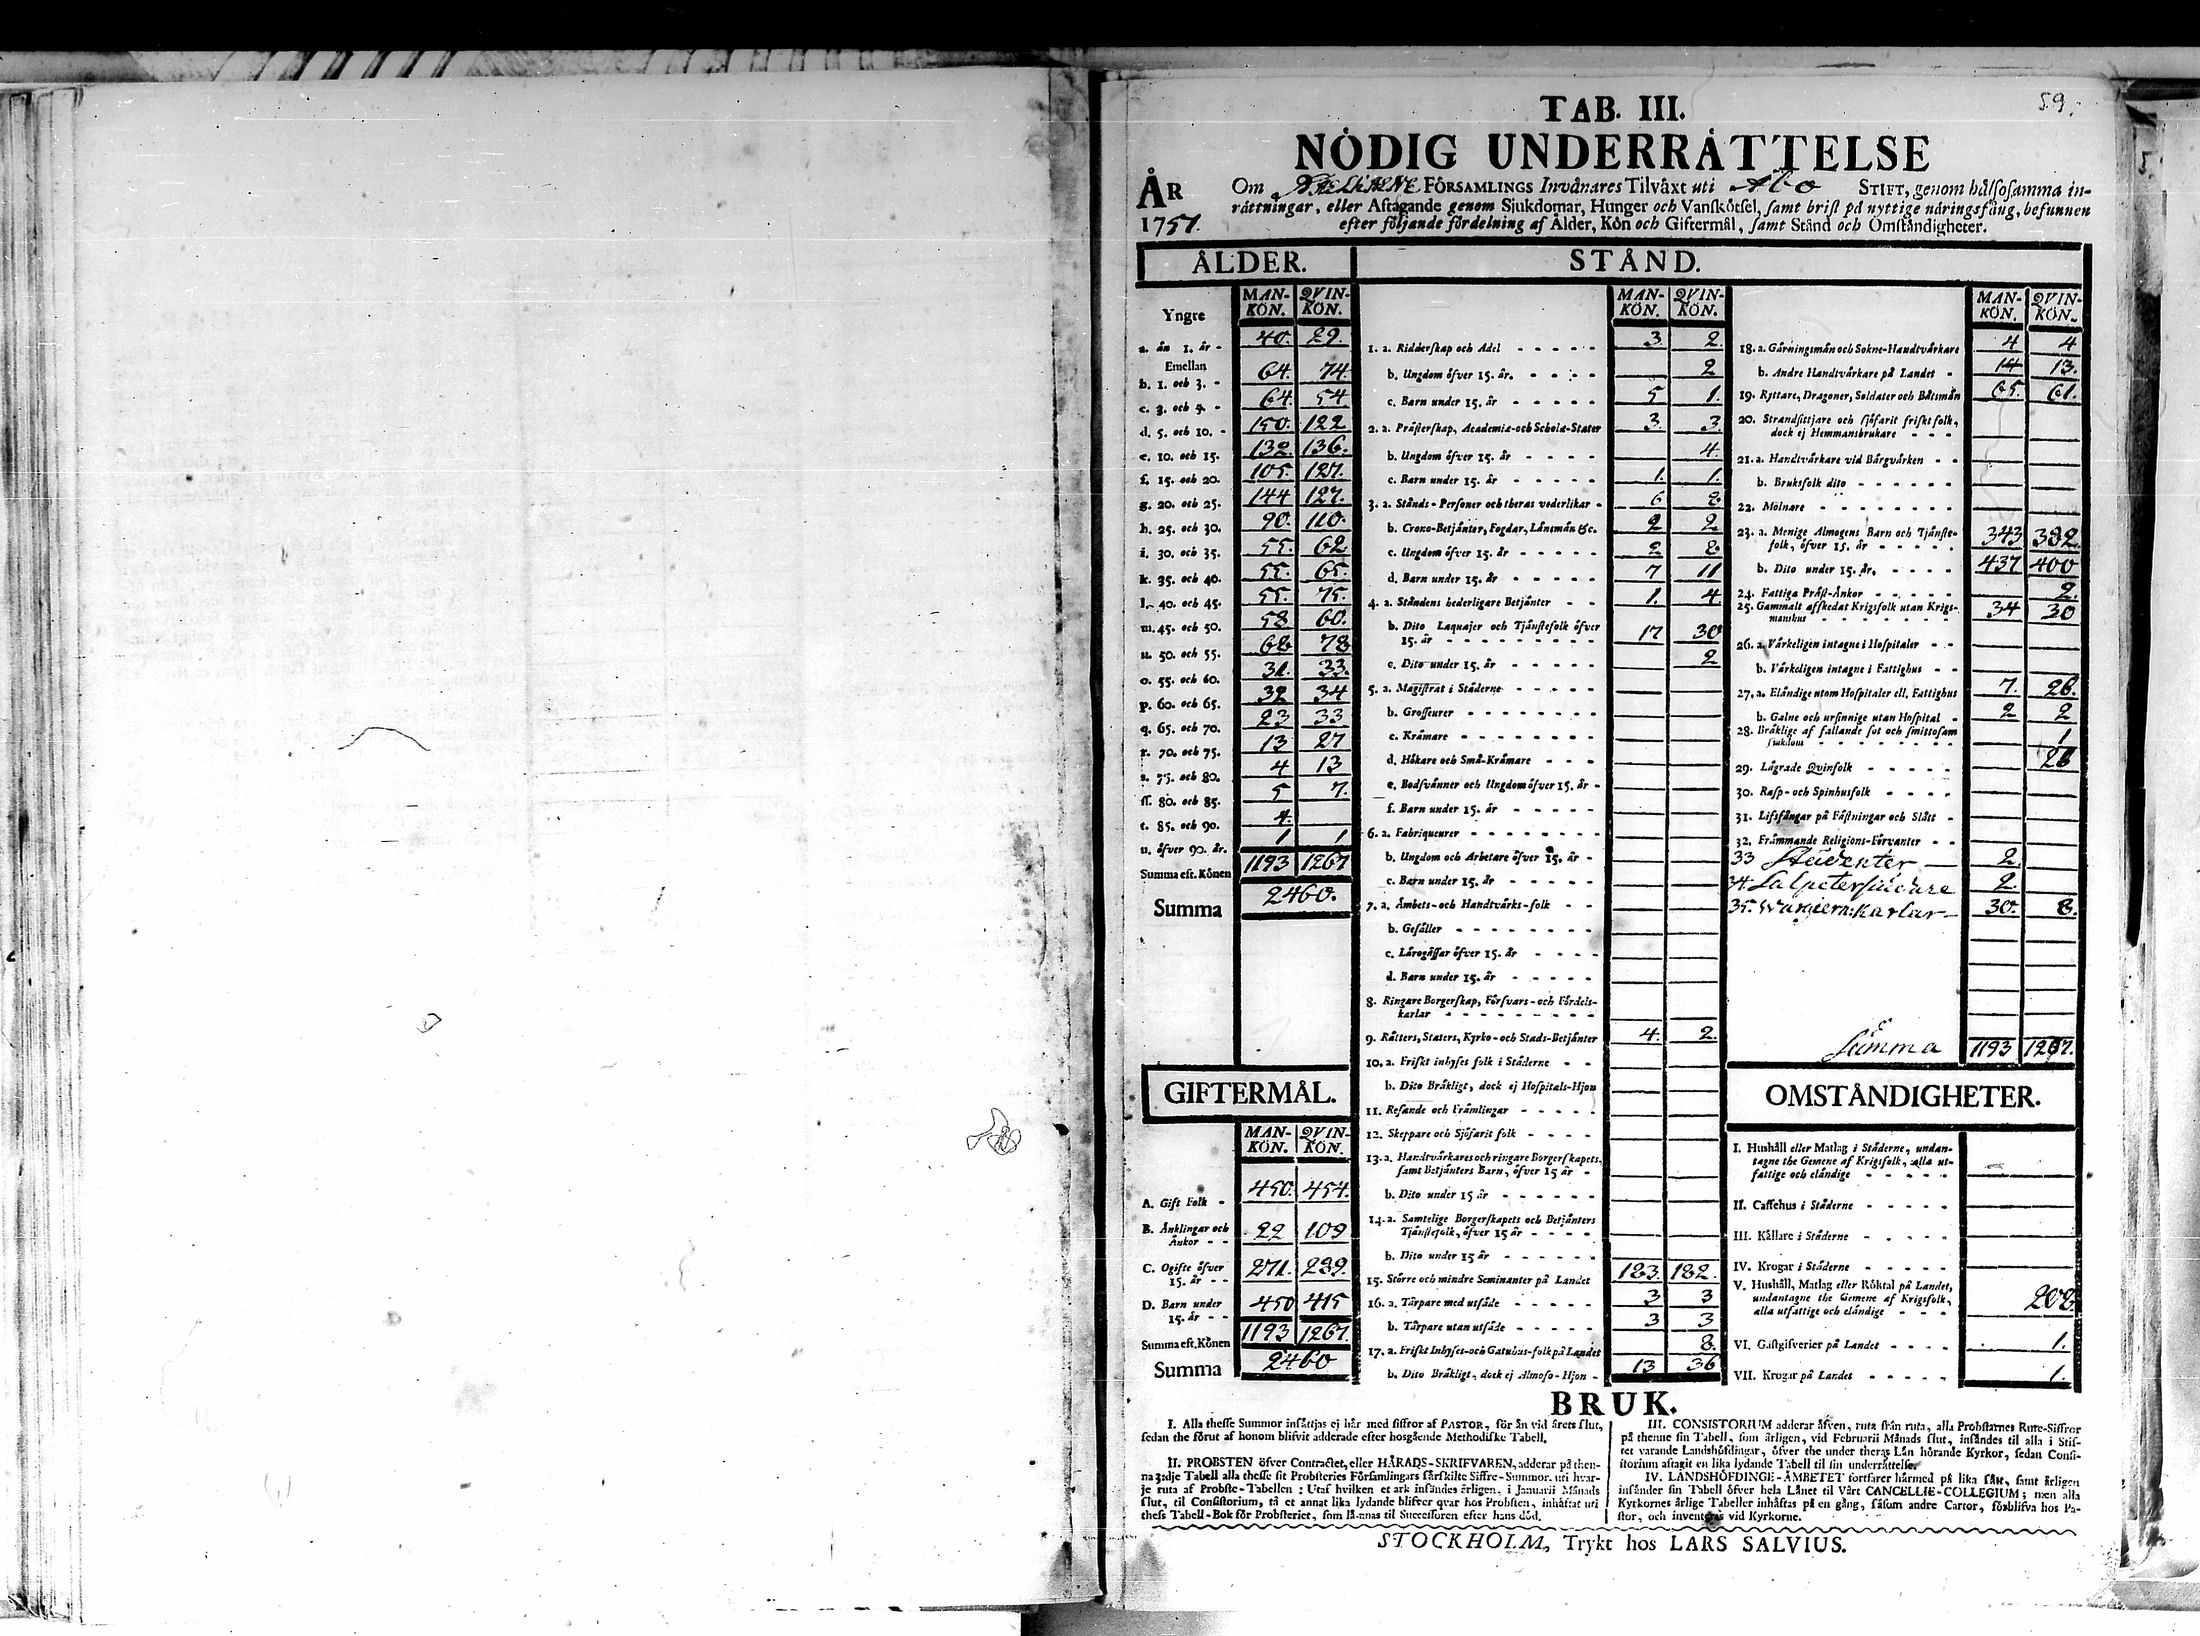 59.
TAB. III.
NÖDIG UNDERRÄTTELSE
ÅR 1751.
Om FÖRSAMLINGS Invånares Tilväxt uti Åbo STIFT, genom hälsosamma in-
rättningar, eller Aftagande genom Sjukdomar, Hunger och Vanskötsel, samt brist på nyttige näringsfång, befunnen
efter följande fördelning af Ålder, Kön och Giftermål, samt Stånd och Omständigheter.
ÅLDER.
MAN-KÖN. QVIN-KÖN.
Yngre
a. än 1. år - 40. 29.
Emellan
b. 1. och 3. - 64. 74.
c. 3. och 5. - 64. 54
d. 5. och 10. - 150. 122
e. 10. och 15. 132. 136.
f. 15. och 20. 105. 127.
g. 20. och 25. 144 127.
h. 25. och 30. 90. 110.
i. 30. och 35. 55. 62
k. 35. och 40. 55. 65.
l. 40. och 45. 55. 75.
m. 45. och 50. 58 60.
n. 50. och 55. 68 78
o. 55. och 60. 31. 33.
p. 60. och 65. 32 34
q. 65. och 70. 23 33
r. 70. och 75. 13 27
s. 75. och 80. 4 13
ss. 80. och 85. 5 7.
t. 85. och 90. 4.
u. öfver 90. år. 1 1
Summa eft. Könen 1193 1267
Summa 2460.
GIFTERMÅL.
MAN-KÖN. QVIN-KÖN.
A. Gift Folk - 450. 454.
B. Änklingar och Änkor - - 22 109
C. Ogifte öfver 15. år - - 271. 289.
D. Barn under 15. år - - 450 415
Summa eft. Könen 1193 1267.
Summa 2460
STÅND.
MAN-KÖN. QVIN-KÖN.
1. a. Ridderskap och Adel - - - - - 3 2.
b. Ungdom öfver 15. år. - - - - 2
c. Barn under 15. år - - - - - 5 1.
2. a. Prästerskap, Academiæ-och Scholæ-Stater 3. 3.
b. Ungdom öfver 15. år - - - - 4.
c. Barn under 15. år - - - - - 1. 1.
3. a. Stånds-Personer och theras vederlikar - 6 8
b. Crono-Betjänter, Fogdar, Länsmän &c. 2 2
c. Ungdom öfver 15. år - - - - - 2 8
d. Barn under 15. år - - - - - 7 11
4. a. Ståndens hederligare Betjänter - - 1. 4.
b. Dito Laquajer och Tjänstefolk öfver
15. år - - - - - - - - - 17 30
c. Dito under 15. år - - - - - 2
5. a. Magistrat i Städerne - - - - -
b. Grosseurer - - - - - - - -
c. Krämare - - - - - - - -
d. Hökare och Små-Krämare - - -
e. Bodsvänner och Ungdom öfver 15. år -
f. Barn under 15. år - - - - -
6. a. Fabriqueurer - - - - - - - -
b. Ungdom och Arbetare öfver 15. år -
c. Barn under 15. år - - - - -
7. a. Ämbets-och Handtvärks-folk - - -
b. Gesäller - - - - - - - -
c. Lärogässar öfver 15. år - - - -
d. Barn under 15. år - - - - -
8. Ringare Borgerskap, Försvars-och Fördels-
karlar - - - - - - - - -
9. Rätters, Staters, Kyrko-och Stads-Betjänter 4. 2.
10. a. Friskt inhyses folk i Städerne - -
b. Dito Bräkligt, dock ej Hospitals-Hjon
11. Resande och Främlingar - - - - -
12. Skeppare och Sjöfarit folk - - - -
13. a. Handtvärkares och ringare Borgerskapets,
samt Betjänters Barn, öfver 15 år -
b. Dito under 15 år - - - - - -
14. a. Samtelige Borgerskapets och Betjänters
Tjänstefolk, öfver 15 år - - - -
b. Dito under 15 år - - - - - -
15. Större och mindre Heminanter på Landet 183. 182.
16. a. Tärpare med utsäde - - - - - 3 3
b. Tärpare utan utsäde - - - - - 3 3
17. a. Friskt Inhyses-och Gatuhus-folk på Landet 8.
b. Dito Bräkligt, dock ej Almoso-Hjon - 13 36
MAN-KÖN. QVIN-KÖN.
18. a. Gärningsmän och Sokne-Handtvärkare 4 4
b. Andre Handtvärkare på Landet - 14 13.
19. Ryttare, Dragoner, Soldater och Båtsmän 65. 61.
20. Strandsittjare och sjöfarit friskt folk,
dock ej Hemmansbrukare - - -
21. a. Handtvärkare vid Bärgvärken - -
b. Bruksfolk dito - - - - - -
22. Mölnare - - - - - - - -
23. a. Menige Almogens Barn och Tjänste-
folk, öfver 15. år - - - - - 343 332.
b. Dito under 15. år. - - - - - 437 400
24. Fattiga Präst-Änkor - - - - - 2.
25. Gammalt affskedat Krigsfolk utan Krigs-
manshus - - - - - - - - 34 30
26. a. Värkeligen intagne i Hospitaler - -
b. Värkeligen intagne i Fattighus - -
27. a. Eländige utom Hospitaler ell. Fattighus 7. 26.
b. Galne och ursinnige utan Hospital - 2 2
28. Bräklige af fallande sot och smittosam
sjukdom - - - - - - - - 1
29. Lägrade Qvinfolk - - - - - 28
30. Rasp-och Spinhusfolk - - - -
31. Lifsfångar på Fästningar och Slått -
32. Främmande Religions-Förvanter - -
33 Studenter — 2
34. Salpetersiudare 2.
35. — 30. 8.
Summa 1193 1267.
OMSTÄNDIGHETER.
I. Hushåll eller Matlag i Städerne, undan-
tagne the Gemene af Krigsfolk, alla ut-
fattige och eländige - - - - -
II. Caffehus i Städerne - - - - -
III. Källare i Städerne - - - - -
IV. Krogar i Städerne - - - - -
V. Hushåll, Matlag eller Röktal på Landet,
undantagne the Gemene af Krigsfolk,
alla utfattige och eländige - - - 208.
VI. Gästgifverier på Landet - - - - 1.
VII. Krogar på Landet - - - - - 1.
BRUK.
I. Alla thesse Summor insättjas ej här med siffror af PASTOR, för än vid årets slut,
sedan the förut af honom blifvit adderade efter hosgående Methodiske Tabell.
II. PROBSTEN öfver Contractet, eller HÄRADS-SKRIFVAREN, adderar på then-
na 3:dje Tabell alla thesse sit Probsteries Församlingars särskilte Siffre-Summor, uti hvar-
je ruta af Probste-Tabellen: Utaf hvilken et ark insändes årligen, i Januarii Månads
slut, til Consistorium, tå et annat lika lydande blifver qvar hos Probsten, inhäftat uti
thess Tabell-Bok för Probsteriet, som lämnas til Successoren efter hans död.
III. CONSISTORIUM adderar äfven, ruta från ruta, alla Probstarnes Rute-Siffror
på thenne sin Tabell, som årligen, vid Februarii Månads slut, insändes til alla i Stif-
tet varande Landshöfdingar, öfver the under theras Län hörande Kyrkor, sedan Consi-
storium aftagit en lika lydande Tabell til sin underrättelse.
IV. LANDSHÖFDINGE-ÄMBETET fortfarer härmed på lika sätt, samt årligen
insänder sin Tabell öfver hela Länet til Vårt CANCELLIE-COLLEGIUM; men alla
Kyrkornes årlige Tabeller inhäftas på en gång, såsom andre Cartor, förblifva hos Pa-
stor, och inventeras vid Kyrkorne.
STOCKHOLM, Trykt hos LARS SALVIUS.